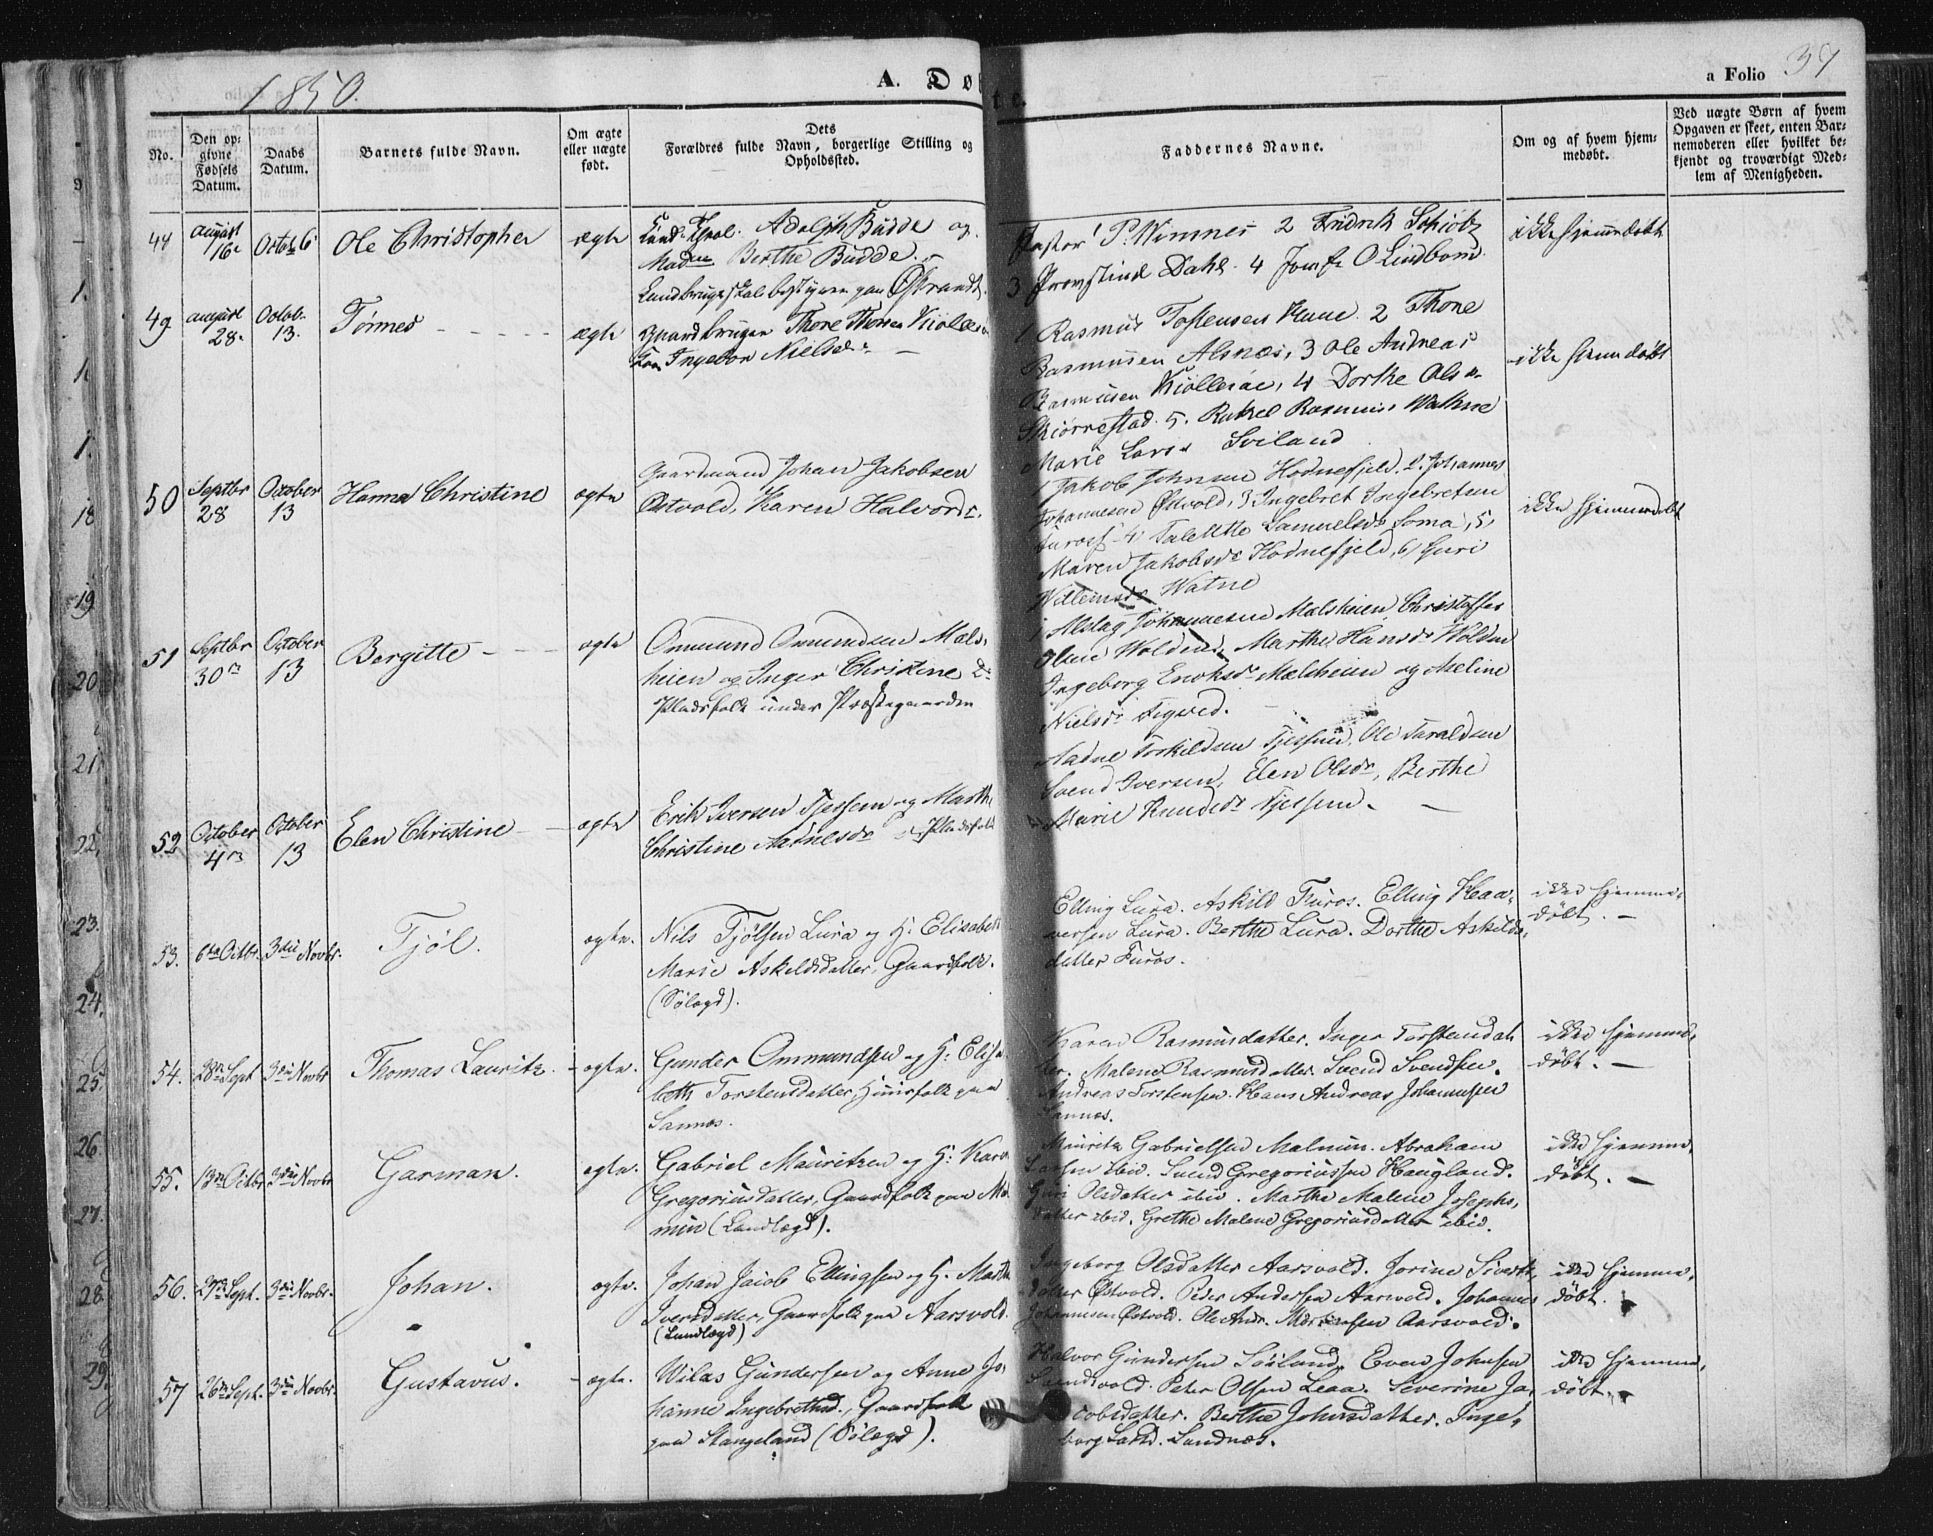 1850.
A. Dø
te.
a Folio
39
No.
Den op-
givne
Fødsels
Datum.
Daabs
Datum.
Barnets fulde Navn.
Om ægte
eller uægte
født.
Dets
Forældres fulde Navn, borgerlige Stilling og
Opholdssted.
Faddernes Navne.
Om og af hvem hjem-
medøbt.
Ved uægte Børn af hvem
Opgaven er skeet, enten Bar-
nemoderen eller hvilket be-
kjendt og troværdigt Med-
lem af Menigheden.
august
16
Octob 6
Ole Christopher
ægte
Adolph Budde og
Berthe Budde
Landbrugsskolebestyrer paa Østraadt
Pastor P. Wimnes 2 Fredrik
3 Provstinde Dahl. 4 Jomfr O Lindbom
ikke hjemmedøbt
49
august
28.
Octob.
13.
Tørmes
ægte
Gaardbruger Thore Thorsen
Ingebor Nielsdr
1 Rasmus Tostensen 2 Thore
Rasmusen Alsnæs, 3 Ole Andreas
Rasmusen, 4 Dorthe Olsdr
Skiørrestad. 5. Rakel Rasmusdr Wathne
Marie Larsdr Sviland
ikke hjemmedøbt
50
Septbr
28
October
13
Hanna Christine
ægte
Gaardmand Johan Jakobsen
Østvold, Karen Halvorsdr.
1 Jakob Johnsen Hodnefjeld, 2. Johannes
Johannesen Østvold, 3 Ingebret Ingebretsen
4 Talette Samuelsdr Soma, 5,
Maren Jakobsdr Hodnefjeld, 6, Guri
Willemsdr Watne
ikke hjemmedøbt
51
Septbr
30
October
13
Bergitte
ægte
Ommund Ommundsen Mæls-
heien og Inger Christine
Pladsfolk under Præstegaarden
Aslag Johannesen Malsheien, Christoffer
Olsen Wolden, Marthe Hansdr Wolden
Ingeborg Eriksdr Mælsheien og Meline
Nielsdr
52
October
4
October
13
Elen Christine
ægte
Erik Iversen Tjessem og Marthe
Christine Aadnesdr Pladsfolk
Aadne Torkildsen Tjessem, Ole Taraldsen
Svend Iversen, Elen Olsdr, Berthe
Marie Knudsdr Tjessem.
53.
6te Octbr.
3die Novbr.
Tjöl.
ægte.
Nils Tjölsen Lura og H. Elisabeth
Marie Askildsdatter, Gaardfolk.
(Sölægd).
Elling Lura. Askild Furos. Elling Haa-
versen Lura. Berthe Lura. Dorthe Askilds-
datter Furos.
ikke hjemme-
döbt.
54.
28 Sept
3die Novbr
Thomas Lauritz.
ægte.
Gunder Ommundsen og H: Elisa-
beth Torstensdatter, Huusfolk paa
Sannæs.
Karen Rasmusdatter. Inger Torstensdat-
ter. Malene Rasmusdatter. Svend Svendsen.
Andreas Torstensen. Hans Andreas Johannsen
Sannæs.
ikke hjemme-
döbt.
55.
13 Octbr
3die Novbr
Garman.
ægte.
Gabriel Mauritzen og H: Karen
Gregoriusdatter, Gaardfolk paa Mal-
min (Landlægd).
Mauritz Gabrielsen Malmin. Abraham
Larsen ibid. Svend Gregoriussen Haugland.
Guri Olsdatter ibid. Marthe Malene Josephs-
datter ibid. Grethe Malene Gregoriusdatter ibid.
ikke hjemme-
döbt.
56.
27 Sept.
3die Novbr.
Johan.
ægte.
Johan Jacob Ellingsen og H. Marthe
Iversdatter, Gaardfolk paa Aarsvold.
(Landlægd)
Ingeborg Olsdatter Aarsvold. Jorine Siverts-
datter Østvold. Peder Andersen Aarsvold. Johannes
Johannesen Østvold. Ole Andr. Mortensen Aarsvold.
ikke hjemme-
döbt.
57
26 Sept.
3die Novbr.
Gustavus.
ægte.
Wilas Gundersen og Anne Jo-
hanne Ingebrethsd., Gaardfolk
paa Stangeland (Sölægd).
Halvor Gundersen Soiland. Even Johnsen
Peter Olsen Leaa. Severine Ja-
cobsdatter. Berthe Johnsdatter. Inge-
borg Larsd. Sandnæs.
ikke hjemme-
döbt.
1.
18
19
20
21
22,
23.
24.
25.
26.
27.
28.
29.